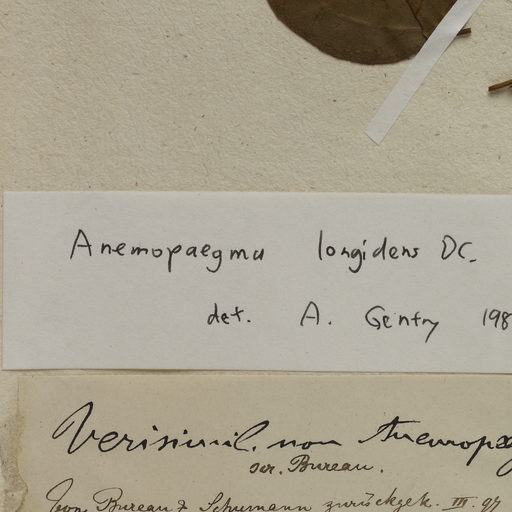 Anemopaegma longidens DC.
det. A. Gentry 198
Verisimil. non Anemopaeg
scr. Bureau.
Von Bureau & Schumann zurückgek. III. 97